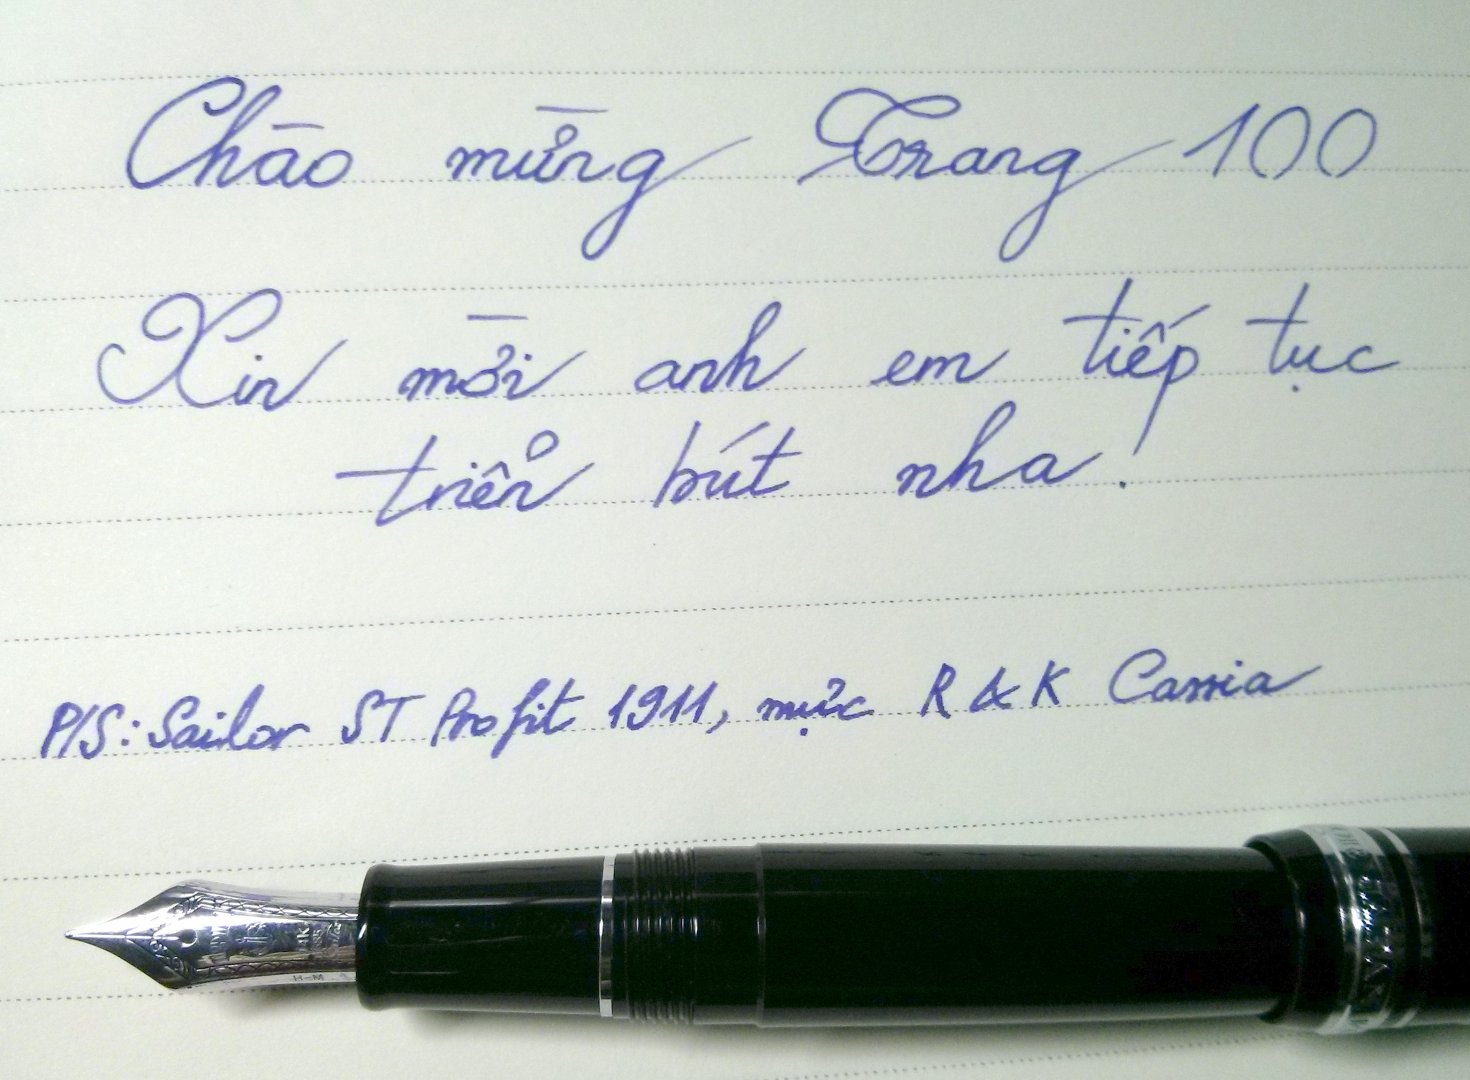 Chào mừng Trang 100
Xin mời anh em tiếp tục
triển bút nha!
P/S: Sailor ST Profit 1911, mực R & K Cassia
14K
H-M